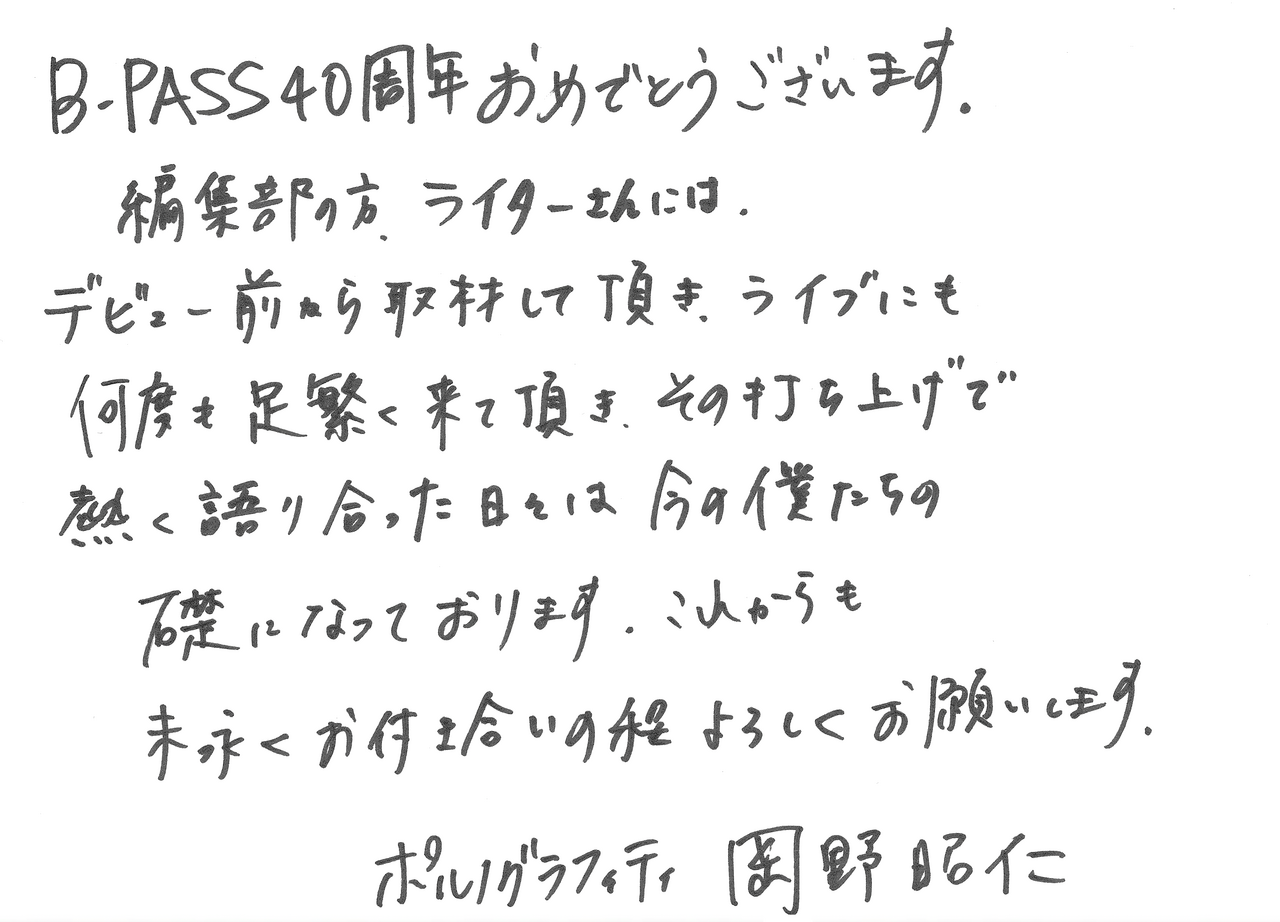 B-PASS40周年おめでとうございます.
編集部の方、ライターさんには.
デビュー前から取材して頂き、ライブにも
何度も足繁く来て頂き、その打ち上げで
熱く語り合った日々は今の僕たちの
礎になっております.これからも
末永くお付き合いの程よろしくお願いします.
ポルノグラフィティ 岡野昭仁